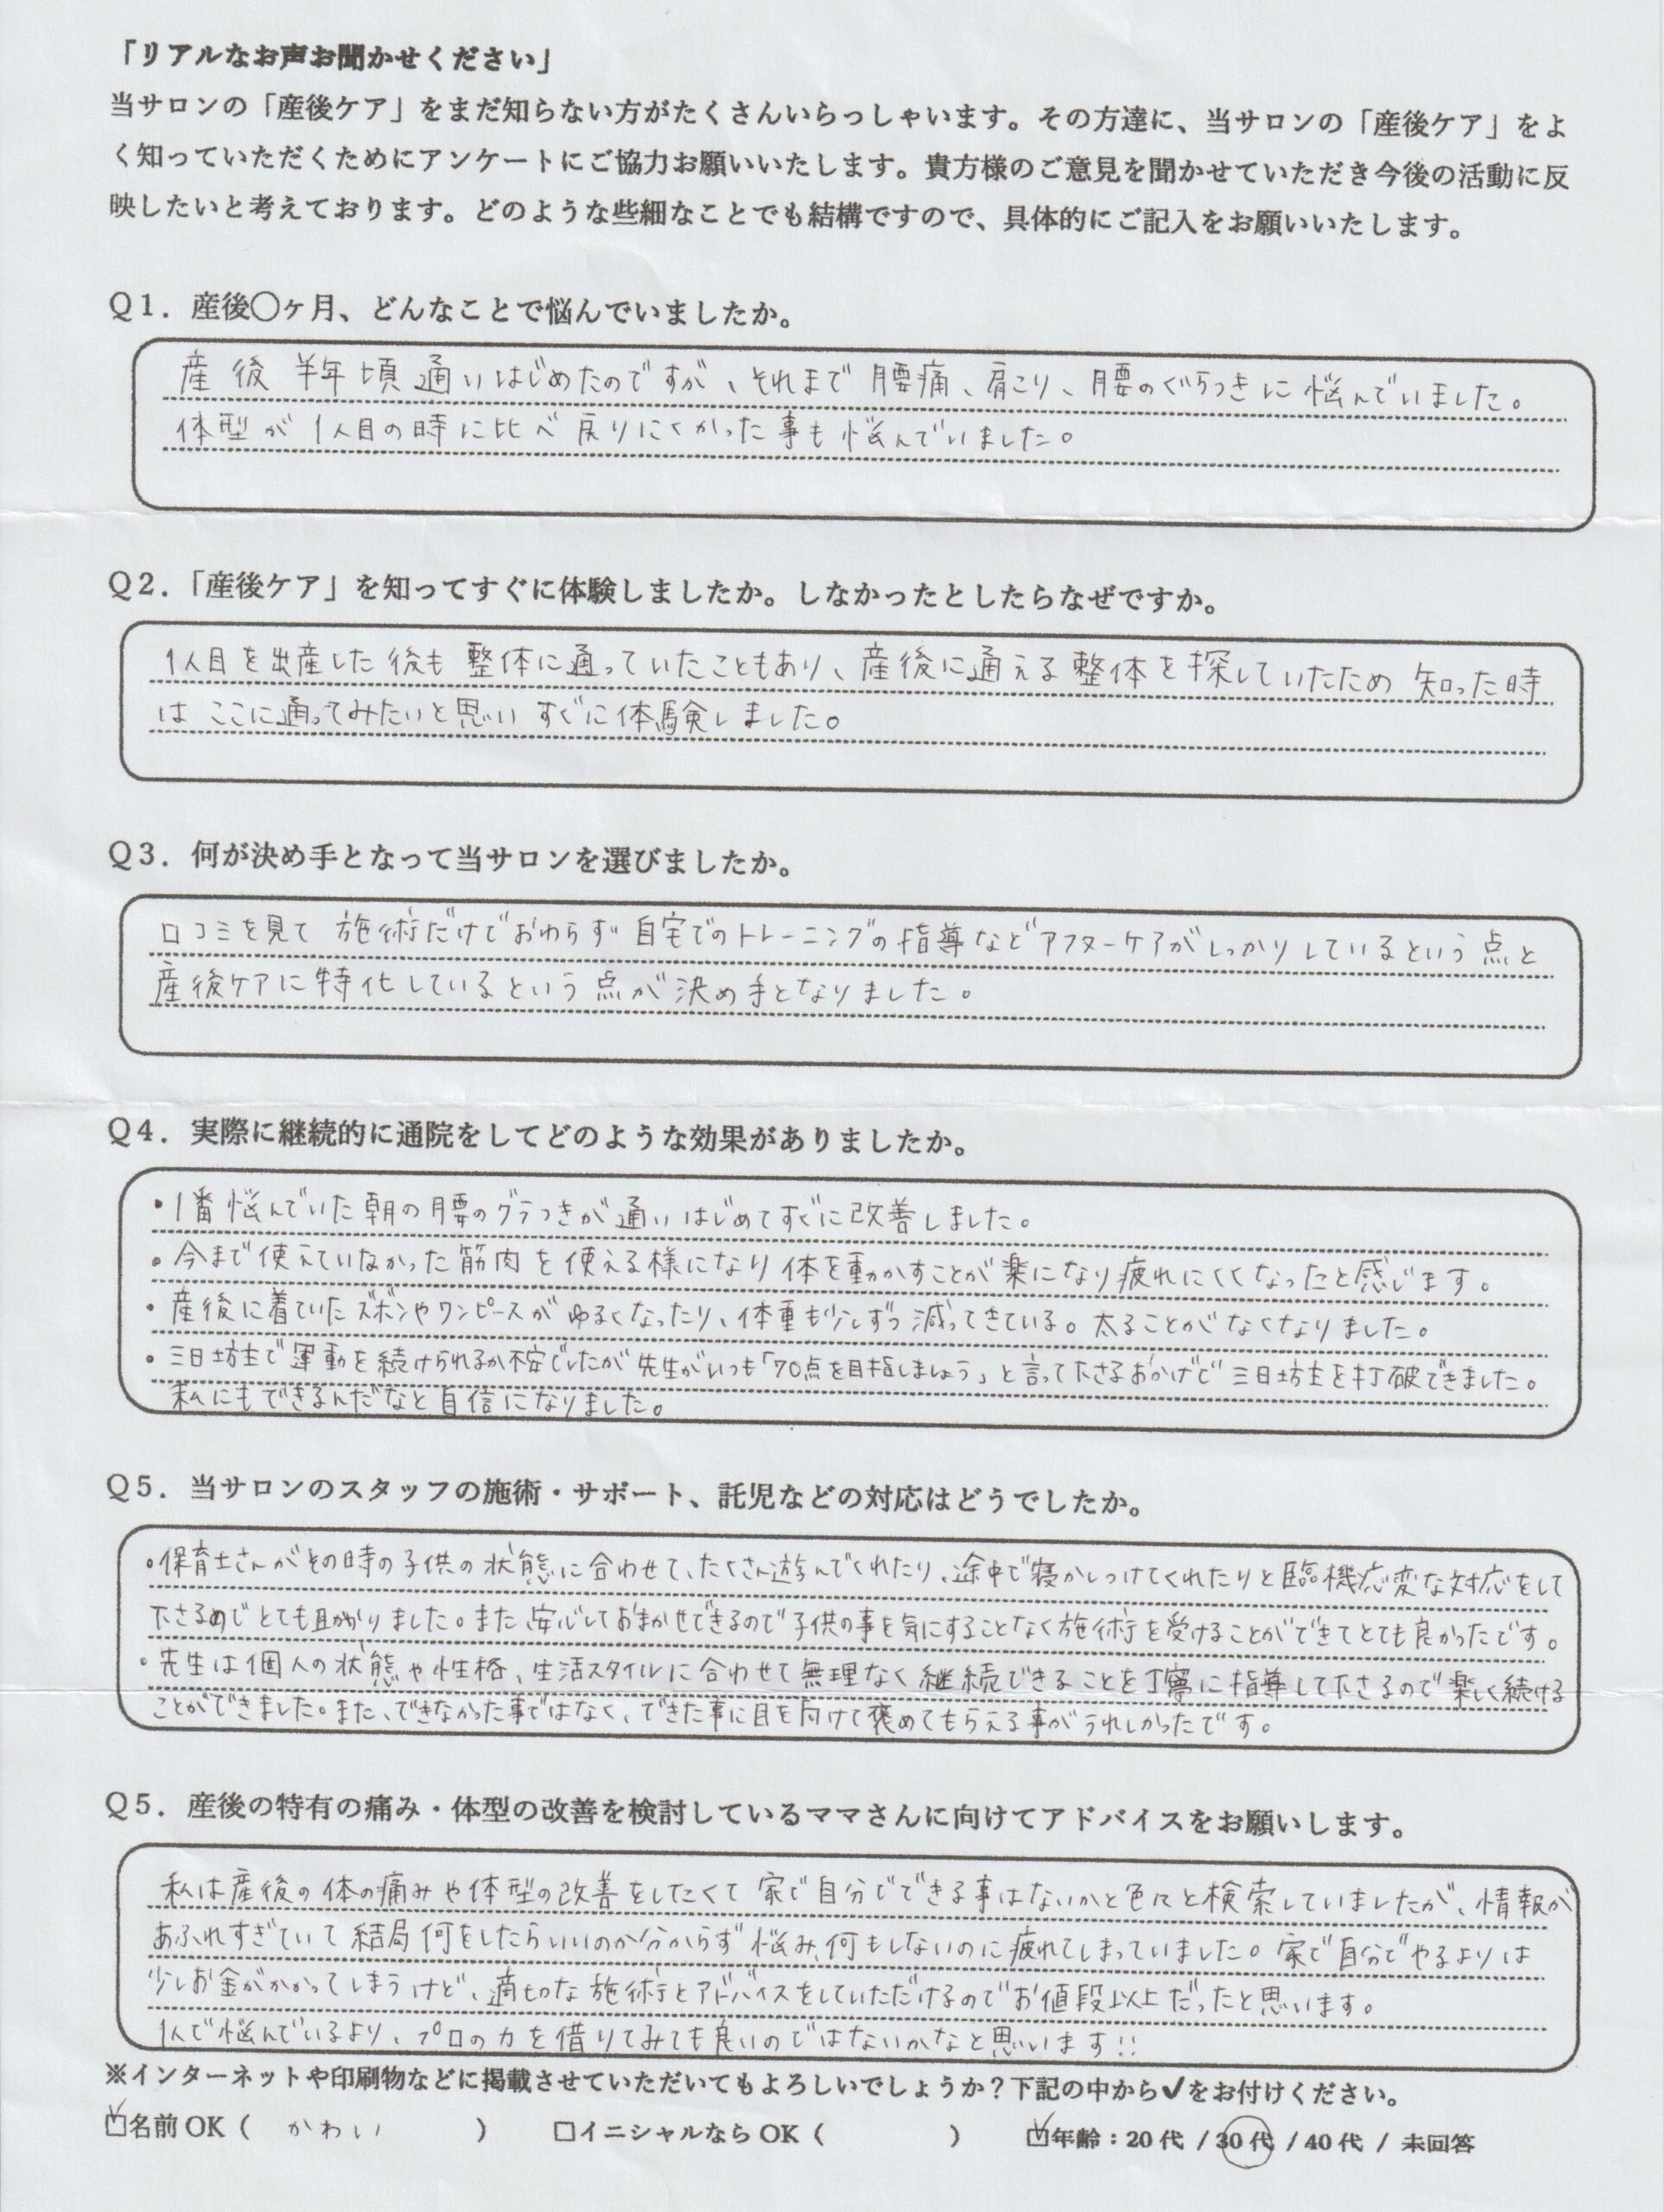 「リアルなお声お聞かせください」
当サロンの「産後ケア」をまだ知らない方がたくさんいらっしゃいます。その方達に、当サロンの「産後ケア」をよ
く知っていただくためにアンケートにご協力お願いいたします。貴方様のご意見を聞かせていただき今後の活動に反
映したいと考えております。どのような些細なことでも結構ですので、具体的にご記入をお願いいたします。
Q1．産後◯ヶ月、どんなことで悩んでいましたか。
産後 半年頃 通いはじめたのですが、それまで 腰痛、肩こり、腰のぐらつきに 悩んでいました。
体型が 1人目の時に比べ 戻りにくかった事も 悩んでいました。
Q2．「産後ケア」を知ってすぐに体験しましたか。しなかったとしたらなぜですか。
1人目を出産した後も 整体に通っていたこともあり、産後に通える整体を探していたため 知った時
は ここに通ってみたいと思い すぐに体験しました。
Q3．何が決め手となって当サロンを選びましたか。
口コミを見て 施術だけでおわらず 自宅でのトレーニングの指導などアフターケアがしっかりしているという点と
産後ケアに特化しているという点が決め手となりました。
Q4．実際に継続的に通院をしてどのような効果がありましたか。
・1番悩んでいた朝の腰のグラつきが通いはじめてすぐに改善しました。
・今まで使えていなかった筋肉を使える様になり体を動かすことが楽になり疲れにくくなったと感じます。
・産後に着ていたズボンやワンピースがゆるくなったり、体重も少しずつ減ってきている。太ることがなくなりました。
・三日坊主で運動を続けられるか不安でしたが先生がいつも「70点を目指しましょう」と言って下さるおかげで三日坊主を打破できました。
私にもできるんだなと自信になりました。
Q5．当サロンのスタッフの施術・サポート、託児などの対応はどうでしたか。
・保育士さんがその時の子供の状態に合わせて、たくさん遊んでくれたり、途中で寝かしつけてくれたりと臨機応変な対応をして
下さるのでとても助かりました。また安心しておまかせできるので子供の事を気にすることなく施術を受けることができてとても良かったです。
・先生は個人の状態や性格、生活スタイルに合わせて無理なく継続できることを丁寧に指導して下さるので楽しく続ける
ことができました。また、できなかった事ではなく、できた事に目を向けて褒めてもらえる事がうれしかったです。
Q5．産後の特有の痛み・体型の改善を検討しているママさんに向けてアドバイスをお願いします。
私は産後の体の痛みや体型の改善をしたくて 家で自分でできる事はないかと色々と検索していましたが、情報が
あふれすぎていて結局何をしたらいいのか分からず悩み、何もしないのに疲れてしまっていました。家で自分でやるよりは
少しお金がかかってしまうけど、適切な施術とアドバイスをしていただけるのでお値段以上だったと思います。
1人で悩んでいるより、プロの力を借りてみても良いのではないかなと思います!!
※インターネットや印刷物などに掲載させていただいてもよろしいでしょうか？下記の中から✓をお付けください。
☑名前 OK（ かわい ） □イニシャルなら OK（ ） ☑年齢：20 代 / 30 代 / 40 代 / 未回答